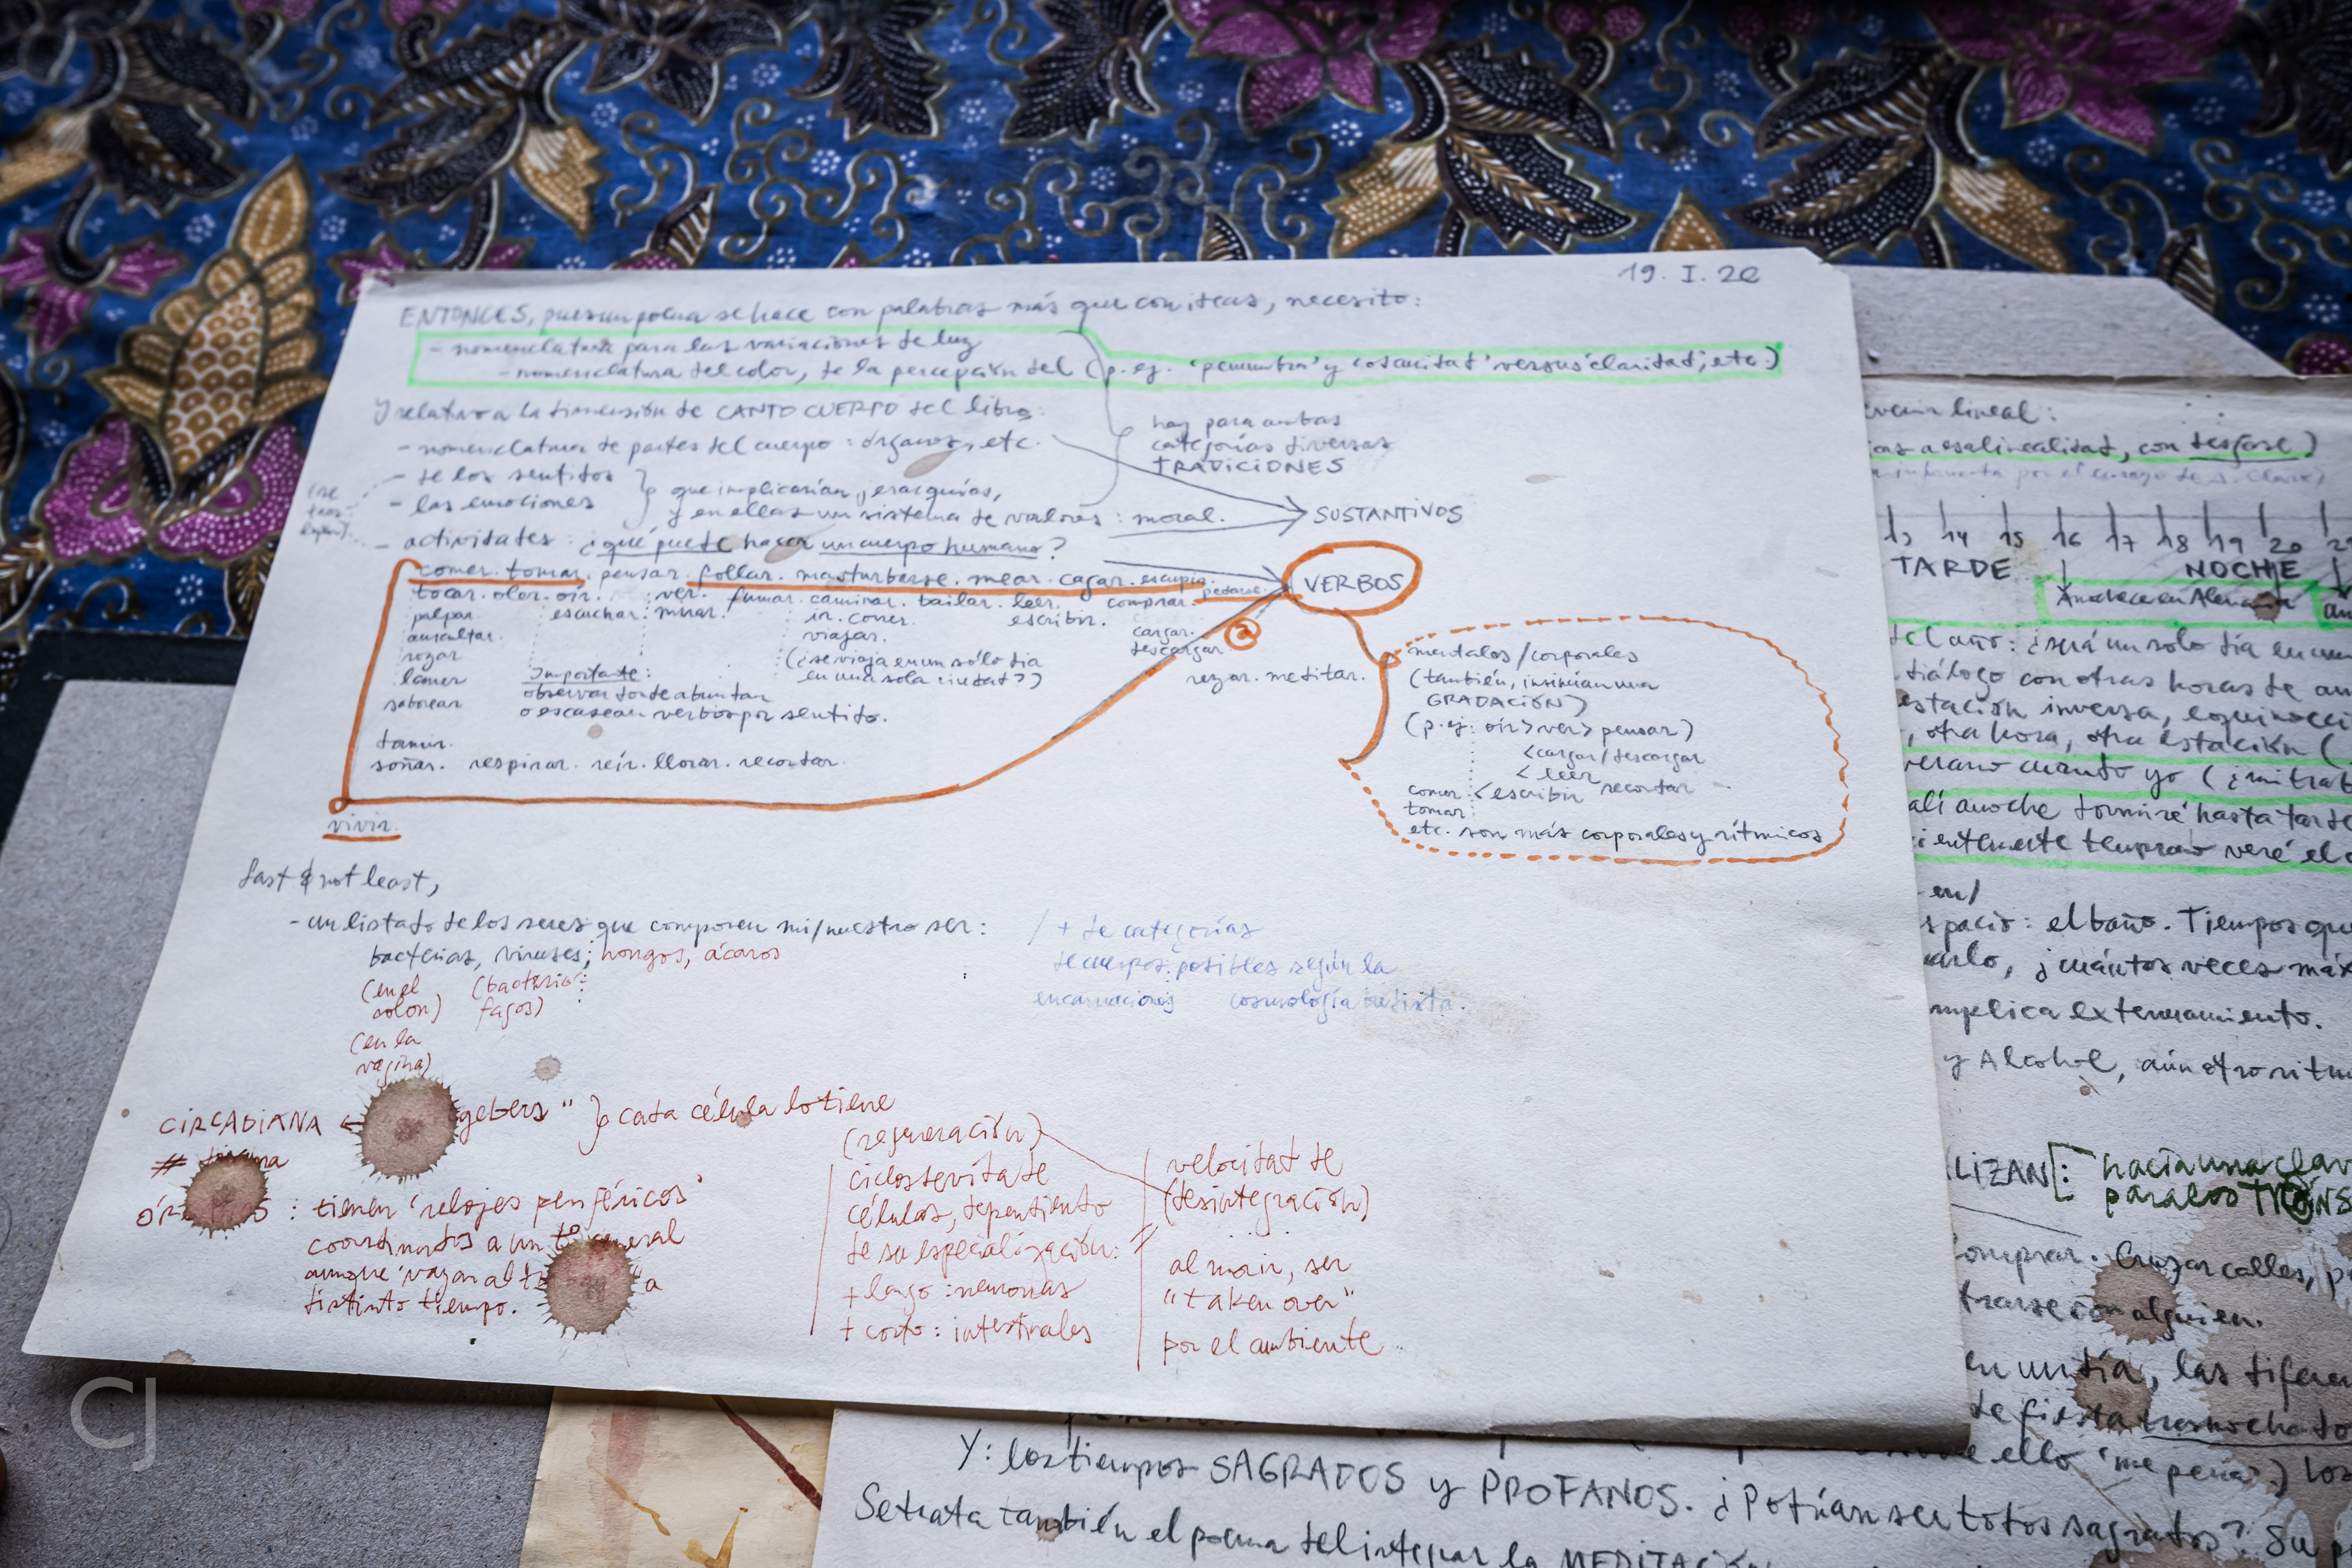 19. I. 20
ENTONCES, pues un poema se hace con palabras más que con ideas, necesito:
- nomenclatura para las variaciones de luz
- nomenclatura del color, de la percepción del (p. ej. 'penumbra' y 'oscuridad' versus 'claridad', etc.)
Y relativo a la dimensión de CANTO CUERPO del libro:
- nomenclatura de partes del cuerpo: órganos, etc.
- de los sentidos
- las emociones
que implicarían jerarquías,
y en ellas un sistema de valores: moral.
hay para ambas
categorías diversas
TRADICIONES
SUSTANTIVOS
- actividades: ¿qué puede hacer un cuerpo humano?
comer. tomar. pensar. follar. masturbarse. mear. cagar. escupir.
pedorse.
VERBOS
tocar. oler. oír. ver. fumar. caminar. bailar. leer. comprar.
palpar escuchar. mirar. ir. correr. escribir.
auscultar. viajar. cargar.
rozar (¿se viaja en un sólo día descargar
lamer Importante: en una sola ciudad?) rezar. meditar.
saborear observar donde abundan
o escasean verbos por sentido.
dormir.
soñar. respirar. reír. llorar. recordar.
vivir.
a
mentales/corporales
(también, insinúan una
GRADACIÓN)
(p. ej: oír > ver > pensar)
< cargar/descargar
< leer
comer < escribir recordar
tomar
etc. son más corporales y rítmicos
last & not least,
- un listado de los seres que componen mi/nuestro ser:
bacterias, viruses; hongos, ácaros
(en el (bacterio-
colon) fagos)
(en la
vagina)
/ + de categorías
de cuerpos posibles según la
encarnaciones cosmología budista.
CIRCADIANA ← gebers" } cada célula lo tiene
#
: tienen 'relojes periféricos'
coordinados a un general
aunque vayan al a
distinto tiempo.
(regeneración)
ciclos de vida de
células, dependiendo
de su especialización:
+ largo: neuronas
+ corto: intestinales
velocidad de
(desintegración)
al morir, ser
"taken over"
por el ambiente
venir lineal:
a esa linealidad, con desfase)
13 14 15 16 17 18 19 20
TARDE NOCHE
Anochece en Alemania
del año: ¿será un solo día en un
diálogo con otras horas de
estación inversa, equinocci
, otra hora, otra estación (
verano cuando yo (¿mitad
salí anoche dormiré hasta tarde
cientemente temprano veré el
en/
spacio: el baño. Tiempos que
¿cuántas veces más
mplica extenuamiento.
y Alcohol, aún otro ritm
LIZAN: hacia una clav
para los TRÁNS
comprar. Cruzar calles, p
trarse con alguien.
en un día, las diferen
de fiesta trasnochado
ello 'me pena'.) Los
Y: los tiempos SAGRADOS y PROFANOS. ¿Podrían ser todos sagrados? Su
Se trata también el poema del integrar la MEDITACIÓN
CJ